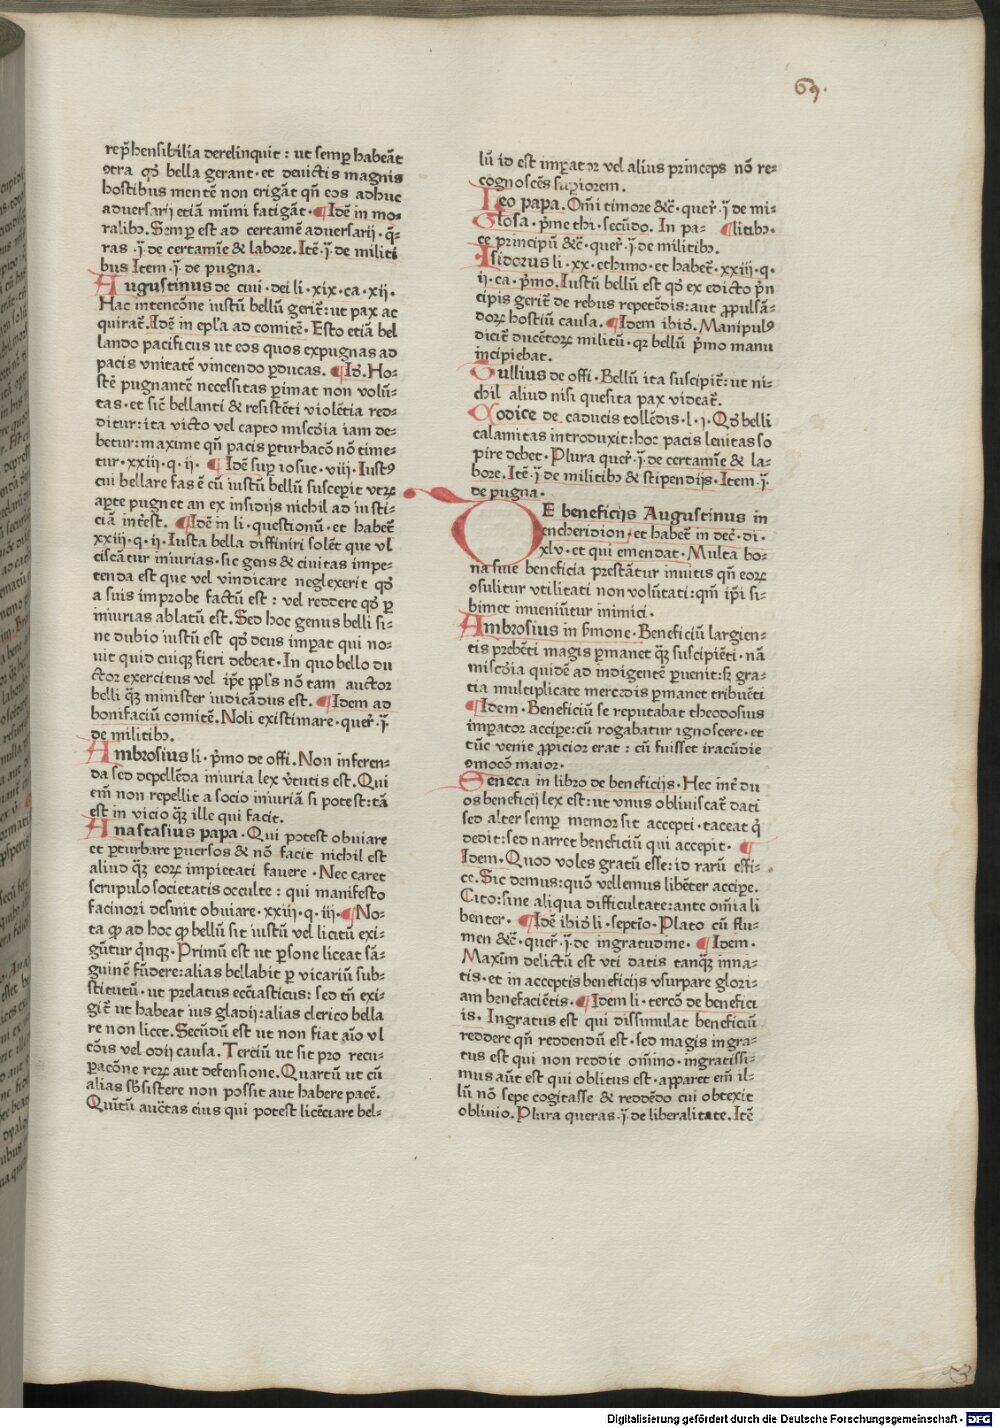 69.
rep̄hensibilia derelinquit : ut semꝑ habeāt
ꝯtra qd̓ bella gerant · et deuictis magnis
hostibus mentē non erigāt qn̄ eos adhuc
aduersarij etiā mīmi fatigāt · ¶Idē in mo-
ralibꝫ. Semꝑ est ad certamē aduersarij · q̄-
ras .j̄. de certamīe & labore. Itē .j̄. de militi
bus Item .j̄. de pugna.
Augustinus de ciui · dei li · xix · ca · xij ·
Hac intencōne iustū bellū gerit᷑: ut pax ac
quirat᷑. Idē in epl̓a ad comitē · Esto etiā bel
lando pacificus ut eos quos expugnas ad
pacis vnitatē vincendo ꝑducas. ¶Id̓. Ho-
stē pugnantē necessitas ꝑimat non volū-
tas · et sic᷑ bellanti & resistēti violētia red-
ditur: ita victo vel capto misc̓dia iam de-
betur: maxime qn̄ pacis ꝑturbacō nō time-
tur · xxiij · q · ij · ¶ Idē suꝑ iosue · viij · Iustꝰ
cui bellare fas ē cū iustū bellū susceꝑit vtꝝ
aꝑte pugnet an ex insidijs nichil ad iusti-
ciā int̓est. ¶Idē in li · questionū · et habet᷑
xxiij · q · ij · Iusta bella diffiniri solēt que vl
ciscātur iniurias · sic gens & ciuitas impe-
tenda est que vel vindicare neglexerit qd̓
a suis improbe factū est : vel reddere qd̓ ꝑ
iniurias ablatū est. Sed hoc genus belli si-
ne dubio iustū est qd̓ deus imꝑat qui no-
uit quid cuiqꝫ fieri debeat · In quo bello du
ctor exercitus vel ip̄e ppl̓s nō tam auctor
belli qꝫ minister iudicādus est. ¶Idem ad
bonifaciū comitē. Noli existimare · quer᷑ .j̄.
de militibꝫ.
Ambrosius li · p̓mo de offi. Non inferen-
da sed depellēda iniuria lex v̓tutis est. Qui
em̄ non repellit a socio iniuriā si potest: tā
est in vicio qꝫ ille qui facit.
Anastasius papa · Qui potest obuiare
et ꝑturbare ꝑuersos & nō facit nichil est
aliud qꝫ eoꝝ impietati fauere · Nec caret
scrupulo societatis occulte : qui manifesto
facinori desinit obuiare · xxiij · q · iij · ¶No-
ta ꝙ ad hoc ꝙ bellū sit iustū vel licitū exi-
gūtur q̓nqꝫ · Primū est ut ꝑsone liceat sā-
guinē fūdere: alias bellabit ꝑ vicariū sub-
stitutū · ut prelatus ecc̄iasticus: sed tn̄ exi-
git᷑ ut habeat ius gladij: alias clerico bella
re non licet. Secūdū est ut non fiat aīo vl
cōis vel odij causa. Terciū ut sit pro recu-
ꝑacōne reꝝ aut defensione. Quartū ut cū
alias sb̓sistere non possit aut habere pacē.
Quītū auc̄tas eius qui potest licēciare bel-
lū id est imꝑator vel alius princeps nō re-
cognoscēs suꝑiorem.
Leo papa. Om̄i timore &c᷑ · quer᷑ .j̄. de mi-
Glosa · p̓me thi · secūdo. In pa- ¶litibꝫ.
ce principū &c᷑ · quer᷑ .j̄. de militibꝫ.
Isidorus li · xx · ethimo · et habet᷑ · xxiij · q ·
ij · ca · p̓mo. Iustū bellū est qd̓ ex edicto p̓n
cipis gerit᷑ de rebus repetēdis: aut ꝓpulsā-
doꝝ hostiū causa. ¶Idem ibid̓. Manipulꝰ
dicit᷑ ducētoꝝ militū · qr bellū p̓mo manu
incipiebat.
Tullius de offi · Bellū ita suscipit᷑: ut ni-
chil aliud nisi quesita pax videat᷑.
Codice de caducis tollēdis · l · j · Qd̓ belli
calamitas introduxit: hoc pacis leuitas so
pire debet · Plura quer᷑ .j̄. de certamīe & la-
bore. Itē .j̄. de militibꝫ & stipendijs · Item .j̄.
de pugna.
DE beneficijs Augustinus in
encheridion · et habet᷑ in dec᷑ · di ·
xlv · et qui emendat · Multa bo-
na siue beneficia prestātur inuitis qn̄ eoꝝ
ꝯsulitur vtilitati non volūtati: qm̄ ip̄i si-
bimet inueniūtur inimici.
Ambrosius in s̓mone · Beneficiū largien-
tis prebēti magis ꝑmanet qꝫ suscipiēti · nā
misc̓dia quidē ad indigentē ꝑuenit: sꝫ gra-
tia multiplicate mercedis ꝑmanet tribuēti
¶Idem · Beneficiū se reputabat theodosius
imꝑator acciꝑe: cū rogabatur ignoscere · et
tūc venie ꝓpicior erat : cū fuisset iracūdie
ꝯmocō maior.
Seneca in libro de beneficijs · Hec int̓ du
os beneficij lex est: ut vnus obliuiscat᷑ dati
sed alter semꝑ memor sit accepti · taceat q̓
dedit: sed narret beneficiū qui accepit · ¶
Idem · Quod voles gratū esse: id rarū effi-
ce. Sic demus: quō vellemus libēter acciꝑe.
Cito: sine aliqua difficultate: ante om̄ia li
benter · ¶Idē ibid̓ li · septīo · Plato cū flu-
men &c᷑ · quer᷑ .j̄. de ingratudine · ¶Idem ·
Maxim̄ delictū est vti datis tanqꝫ inna-
tis · et in acceptis beneficijs vsurpare glori-
am benefaciētis · ¶Idem li · tercō de benefici
is. Ingratus est qui dissimulat beneficiū
reddere qn̄ reddendū est · sed magis ingra-
tus est qui non reddit om̄ino · ingratissi-
mus aūt est qui oblitus est · apparet em̄ il-
lū nō sepe cogitasse & reddēdo cui obrexit
oblinio. Plura queras .j̄. de liberalitate. Itē
Digitalisierung gefördert durch die Deutsche Forschungsgemeinschaft · DFG